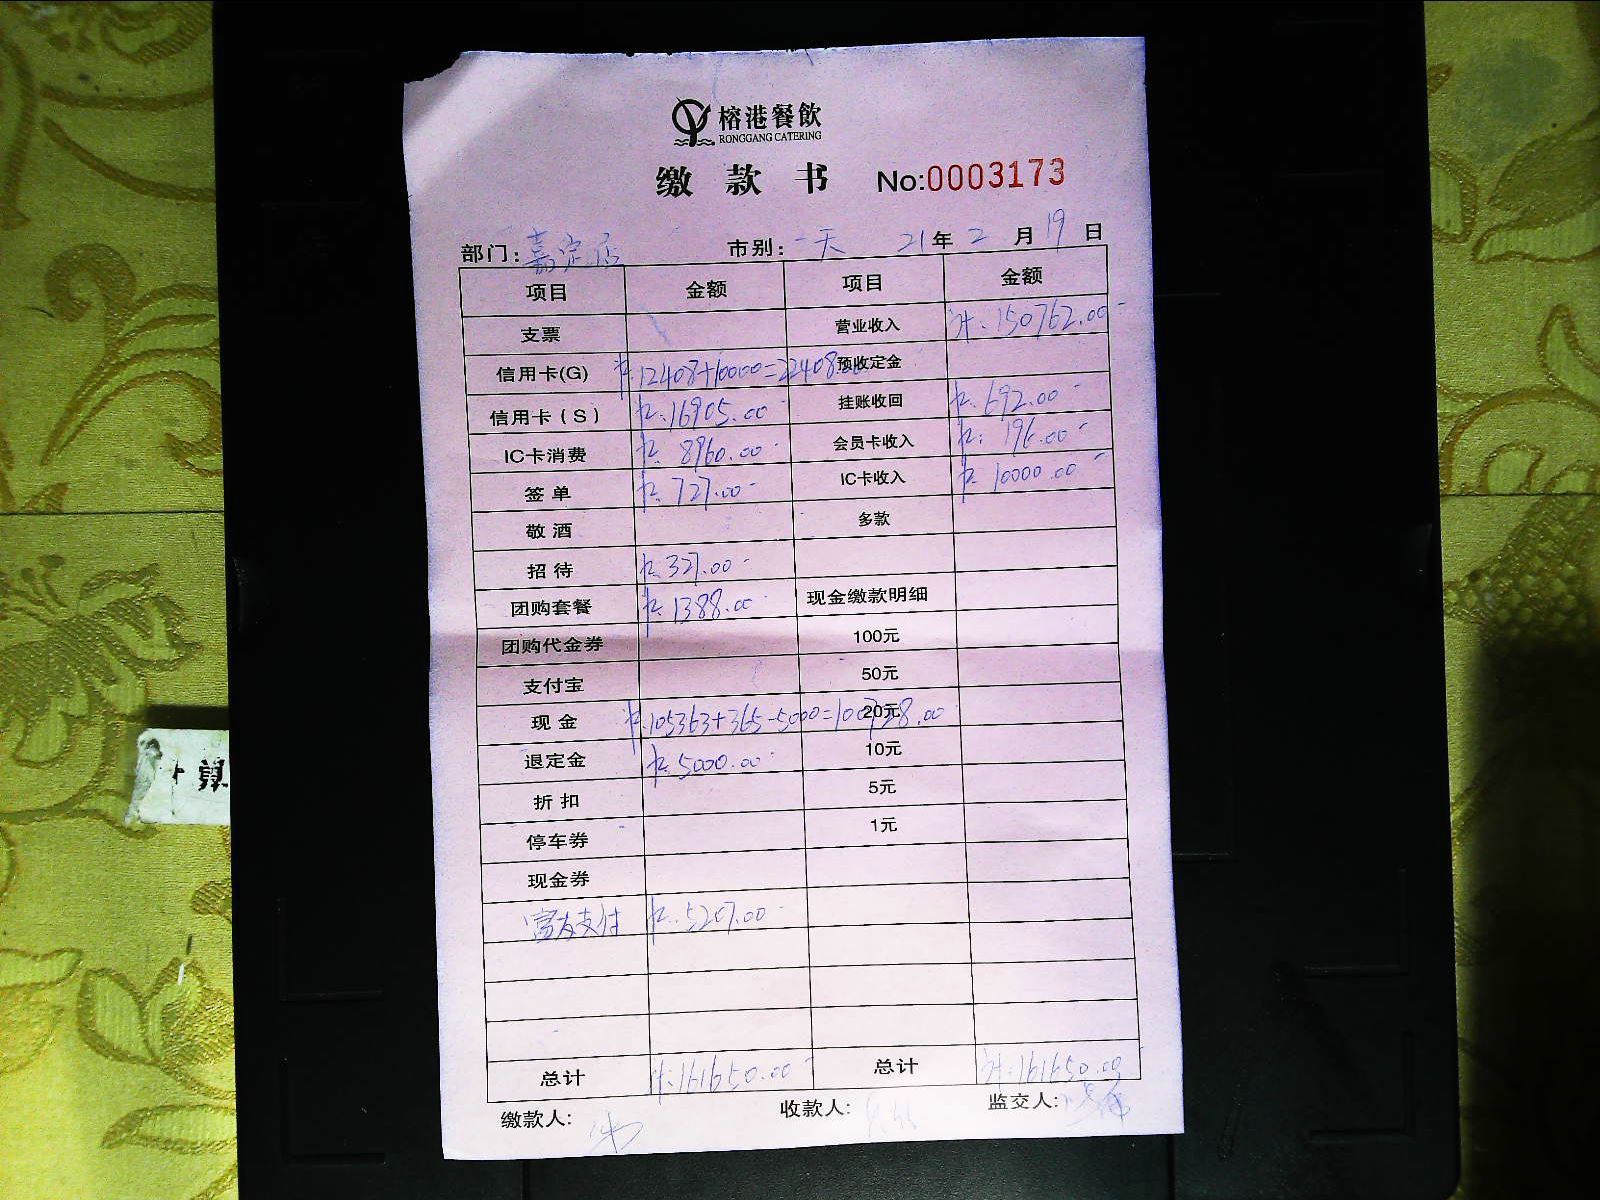 榕港餐飲
RONGGANG CATERING
缴款书 No:0003173
部门: 嘉定店 市别: 一天 21年 2月 19日
项目 金额 项目 金额
支票 营业收入 计: 150762.00
信用卡(G) 12408+10000=22408.00 预收定金
信用卡(S) 16905.00 挂账收回 692.00
IC卡消费 8960.00 会员卡收入 196.00
签单 727.00 IC卡收入 10000.00
敬酒 多款
招待 327.00
团购套餐 1388.00 现金缴款明细
团购代金券 100元
支付宝 50元
现金 105363+365-5000=100728.00 20元
退定金 5000.00 10元
折扣 5元
停车券 1元
现金券
富友支付 5207.00
总计 计: 161650.00 总计 计: 161650.00
缴款人: 收款人: 监交人: